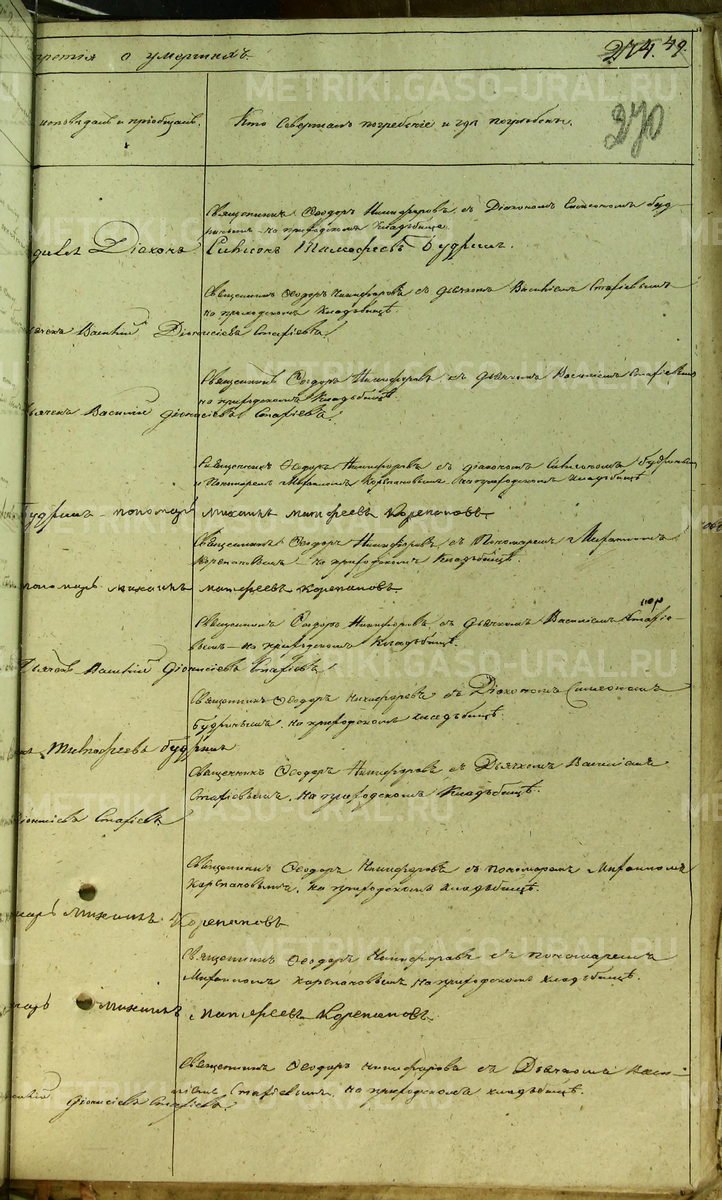 третія о умершихъ. 274. 49.
270
исповѣдалъ и пріобщалъ. Кто совершалъ погребеніе и гдѣ погребены.
Священникъ Ѳеодоръ Никифоровъ съ Діакономъ Симеономъ Буд-
ринымъ на приходскомъ кладбищѣ
Діаконъ Симеонъ Тимофеевъ Будринъ.
Священникъ Ѳеодоръ Никифоровъ съ дьячкомъ Василіемъ Стафіевымъ
на приходскомъ кладбищѣ.
Василій Діонисіевъ Стафіевъ
Священникъ Ѳеодоръ Никифоровъ съ дьячкомъ Василіемъ Стафіевымъ
на приходскомъ кладбищѣ.
Дьячекъ Василій Діонисіевъ Стафіевъ.
Священникъ Ѳеодоръ Никифоровъ съ діакономъ Симеономъ Будринымъ
и Пономаремъ Михаиломъ Корепановымъ на приходскомъ кладбищѣ
Будринъ пономарь Михаилъ Матфеевъ Корепановъ.
Священникъ Ѳеодоръ Никифоровъ съ Пономаремъ Михаиломъ
Корепановымъ на приходскомъ кладбищѣ.
пономарь Михаилъ Матфеевъ Корепановъ.
Священникъ Ѳеодоръ Никифоровъ съ дьячкомъ Василіемъ Стафіе-
вымъ на приходскомъ кладбищѣ.
Дьячекъ Василій Діонисіевъ Стафіевъ
Священникъ Ѳеодоръ Никифоровъ съ Діакономъ Симеономъ
Будринымъ, на приходскомъ кладбищѣ.
Тимофеевъ Будринъ
Священникъ Ѳеодоръ Никифоровъ съ Дьячкомъ Василіемъ
Стафіевымъ, на приходскомъ кладбищѣ.
Діонисіевъ Стафіевъ
Священникъ Ѳеодоръ Никифоровъ съ пономаремъ Михаиломъ
Корепановымъ, на приходскомъ кладбищѣ.
Михаилъ Корепановъ
Священникъ Ѳеодоръ Никифоровъ съ пономаремъ
Михаиломъ Корепановымъ, на приходскомъ кладбищѣ.
Михаилъ Матфеевъ Корепановъ.
Священникъ Ѳеодоръ Никифоровъ съ Дьячкомъ Васи-
ліемъ Стафіевымъ, на приходскомъ кладбищѣ.
Діонисіевъ Стафіевъ.
METRIKI.GASO-URAL.RU